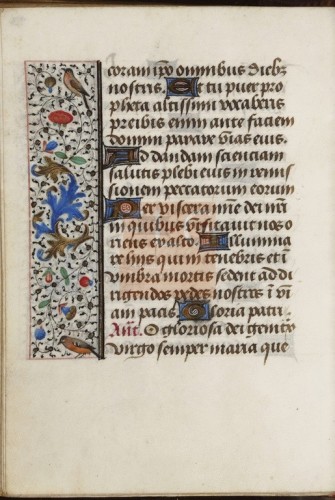 coram ipo omnibus diebz
nostris. Et tu puer pro
pheta altissimi vocaberis
preibis enim ante faciem
domini parare vias eius.
Ad dandam scienciam
salutis plebi eius in remis
sionem peccatorum eorum
Per viscera mie dei nri
in quibus visitauit nos o
riens ex alto. Illumina
re hijs qui in tenebris et i
vmbra mortis sedent ad di
rigendos pedes nostros i vi
am pacis Gloria patri.
Ant. O gloriosa dei genitrix
virgo semper maria que